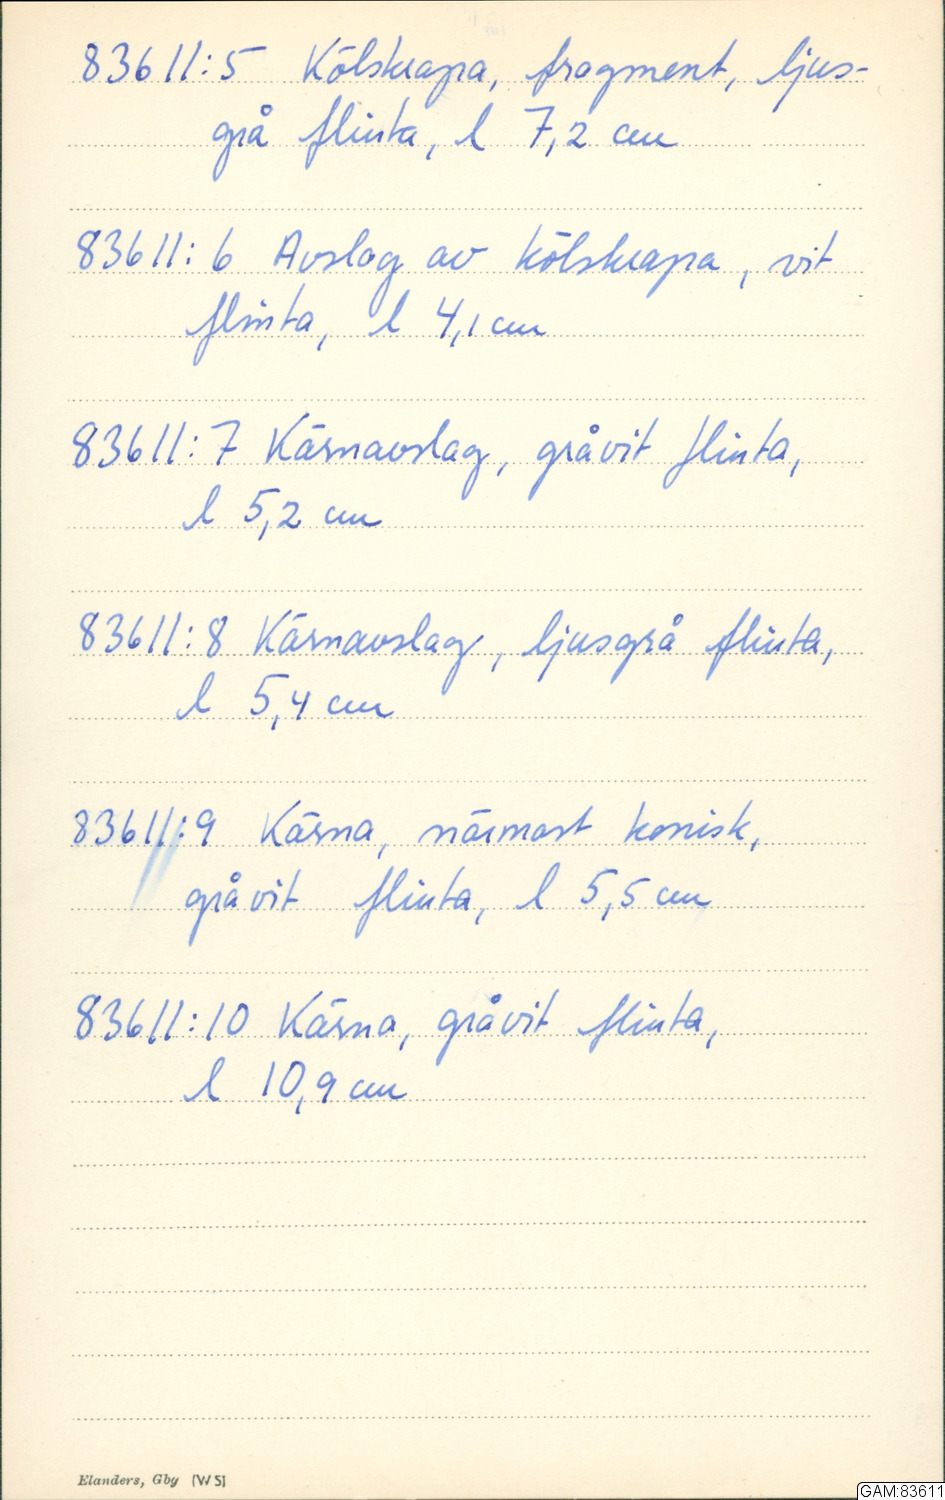 83611:5 Kölskrapa, fragment, ljus-
grå flinta, l 7,2 cm
83611:6 Avslag av kölskrapa, vit
flinta, l 4,1 cm
83611:7 Kärnavslag, gråvit flinta,
l 5,2 cm
83611:8 Kärnavslag, ljusgrå flinta,
l 5,4 cm
83611:9 Kärna, närmast konisk,
gråvit flinta, l 5,5 cm
83611:10 Kärna, gråvit flinta,
l 10,9 cm
Elanders, Gbg (W S)
GAM:83611